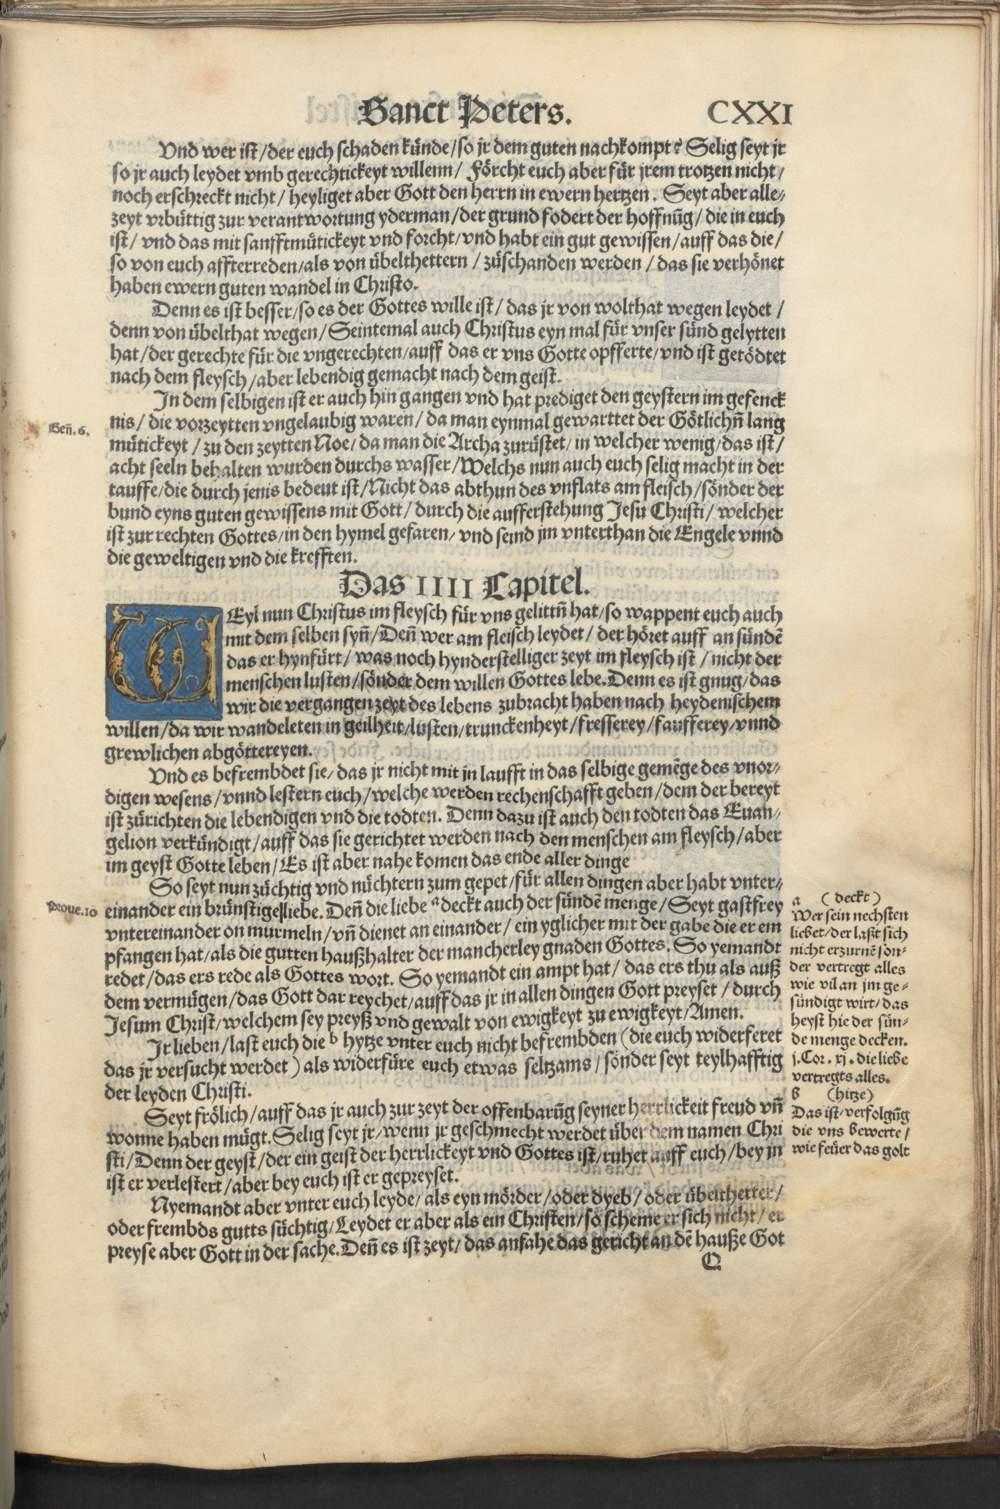 Sanct Peters. CXXI
Vnd wer ist/der euch schaden künde/so jr dem guten nachkompt? Selig seyt jr
so jr auch leydet vmb gerechtickeyt willenn/ Förcht euch aber für jrem trotzen nicht/
noch erschreckt nicht/ heyliget aber Gott den herrn in ewern hertzen. Seyt aber alle-
zeyt vrbüttig zur verantwortung yderman/der grund fodert der hoffnūg/die in euch
ist/ vnd das mit sanfftmütickeyt vnd forcht/vnd habt ein gut gewissen/auff das die/
so von euch affterreden/als von übelthettern/ zůschanden werden/das sie verhönet
haben ewern guten wandel in Christo.
Denn es ist besser/so es der Gottes wille ist/ das jr von wolthat wegen leydet/
denn von übelthat wegen/Seintemal auch Christus eyn mal für vnser sünd gelytten
hat/der gerechte für die vngerechten/auff das er vns Gotte opfferte/vnd ist getödtet
nach dem fleysch/aber lebendig gemacht nach dem geist.
In dem selbigen ist er auch hin gangen vnd hat prediget den geystern im gefenck
Geñ.6.
nis/ die vorzeytten vngelaubig waren/da man eynmal gewarttet der Götlichñ lang
mütickeyt/zu den zeytten Noe/da man die Archa zurüstet/in welcher wenig/das ist/
acht seeln behalten wurden durchs wasser/Welchs nun auch euch selig macht in der
tauffe/die durch jenis bedeut ist/Nicht das abthun des vnflats am fleisch/sönder der
bund eyns guten gewissens mit Gott/ durch die aufferstehung Jesu Christi/ welcher
ist zur rechten Gottes/in den hymel gefaren/ vnd seind jm vnterthan die Engele vnnd
die geweltigen vnd die krefften.
Das IIII Capitel.
WEyl nun Christus im fleysch für vns gelittñ hat/so wappent euch auch
mit dem selben syñ/Deñ wer am fleisch leydet/ der höret auff an sündẽ
das er hynfürt/ was noch hynderstelliger zeyt im fleysch ist/nicht der
menschen lusten/sönder dem willen Gottes lebe. Denn es ist gnug/das
wir die vergangen zeyt des lebens zubracht haben nach heydenischem
willen/da wir wandeleten in geilheit/lusten/trunckenheyt/fresserey/saufferey/vnnd
grewlichen abgöttereyen.
Vnd es befrembdet sie/das jr nicht mit jn laufft in das selbige gemẽge des vnor-
digen wesens/vnnd lestern euch/welche werden rechenschafft geben/dem der bereyt
ist zůrichten die lebendigen vnd die todten. Denn dazu ist auch den todten das Euan-
gelion verkündigt/auff das sie gerichtet werden nach den menschen am fleysch/aber
im geyst Gotte leben/Es ist aber nahe komen das ende aller dinge
So seyt nun züchtig vnd nüchtern zum gepet/für allen dingen aber habt vnter-
Proue.10
einander ein brünstige liebe. Deñ die liebe ᵃdeckt auch der sündẽ menge/Seyt gastfrey
vntereinander on murmeln/vñ dienet an einander/ ein yglicher mit der gabe die er em
pfangen hat/als die gutten haußhalter der mancherley gnaden Gottes. So yemandt
redet/das ers rede als Gottes wort. So yemandt ein ampt hat/ das ers thu als auß
dem vermügen/das Gott dar reychet/auff das jr in allen dingen Gott preyset/ durch
Jesum Christ/welchem sey preyß vnd gewalt von ewigkeyt zu ewigkeyt/Amen.
Ir lieben/last euch die ᵇ hytze vnter euch nicht befrembden (die euch widerferet
das jr versucht werdet) als widerfüre euch etwas seltzams/sönder seyt teylhafftig
der leyden Christi.
Seyt frölich/auff das jr auch zur zeyt der offenbarūg seyner herrlickeit freud vñ
wonne haben mügt. Selig seyt jr/wenn jr geschmecht werdet über dem namen Chri
sti/Denn der geyst/der ein geist der herrlickeyt vnd Gottes ist/ruhet auff euch/bey jn
ist er verlestert/aber bey euch ist er gepreyset.
Nyemandt aber vnter euch leyde/als eyn mörder/oder dyeb/oder übelthetter/
oder frembds gutts süchtig/Leydet er aber als ein Christen/so scheme er sich nicht/er
preyse aber Gott in der sache. Deñ es ist zeyt/das anfahe das gericht an dẽ hauße Got
Q
a (deckt)
Wer sein nechsten
liebet/der laßt sich
nicht erzurnẽ/son-
der vertregt alles
wie vil an jm ge-
sündigt wirt/das
heyst hie der sün-
de menge decken.
j.Cor.xj. die liebe
vertregts alles.
b (hitze)
Das ist/verfolgūg
die vns bewerte/
wie feüer das golt